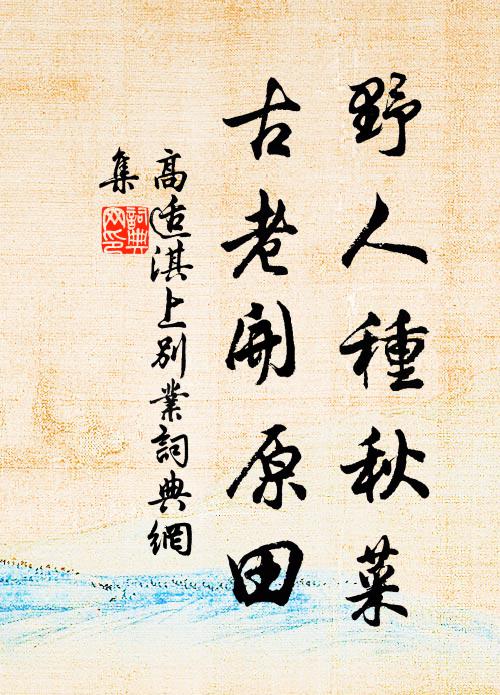 野人種秋菜
古老開原田
高適淇上別業詞典網
集
詞典
网印